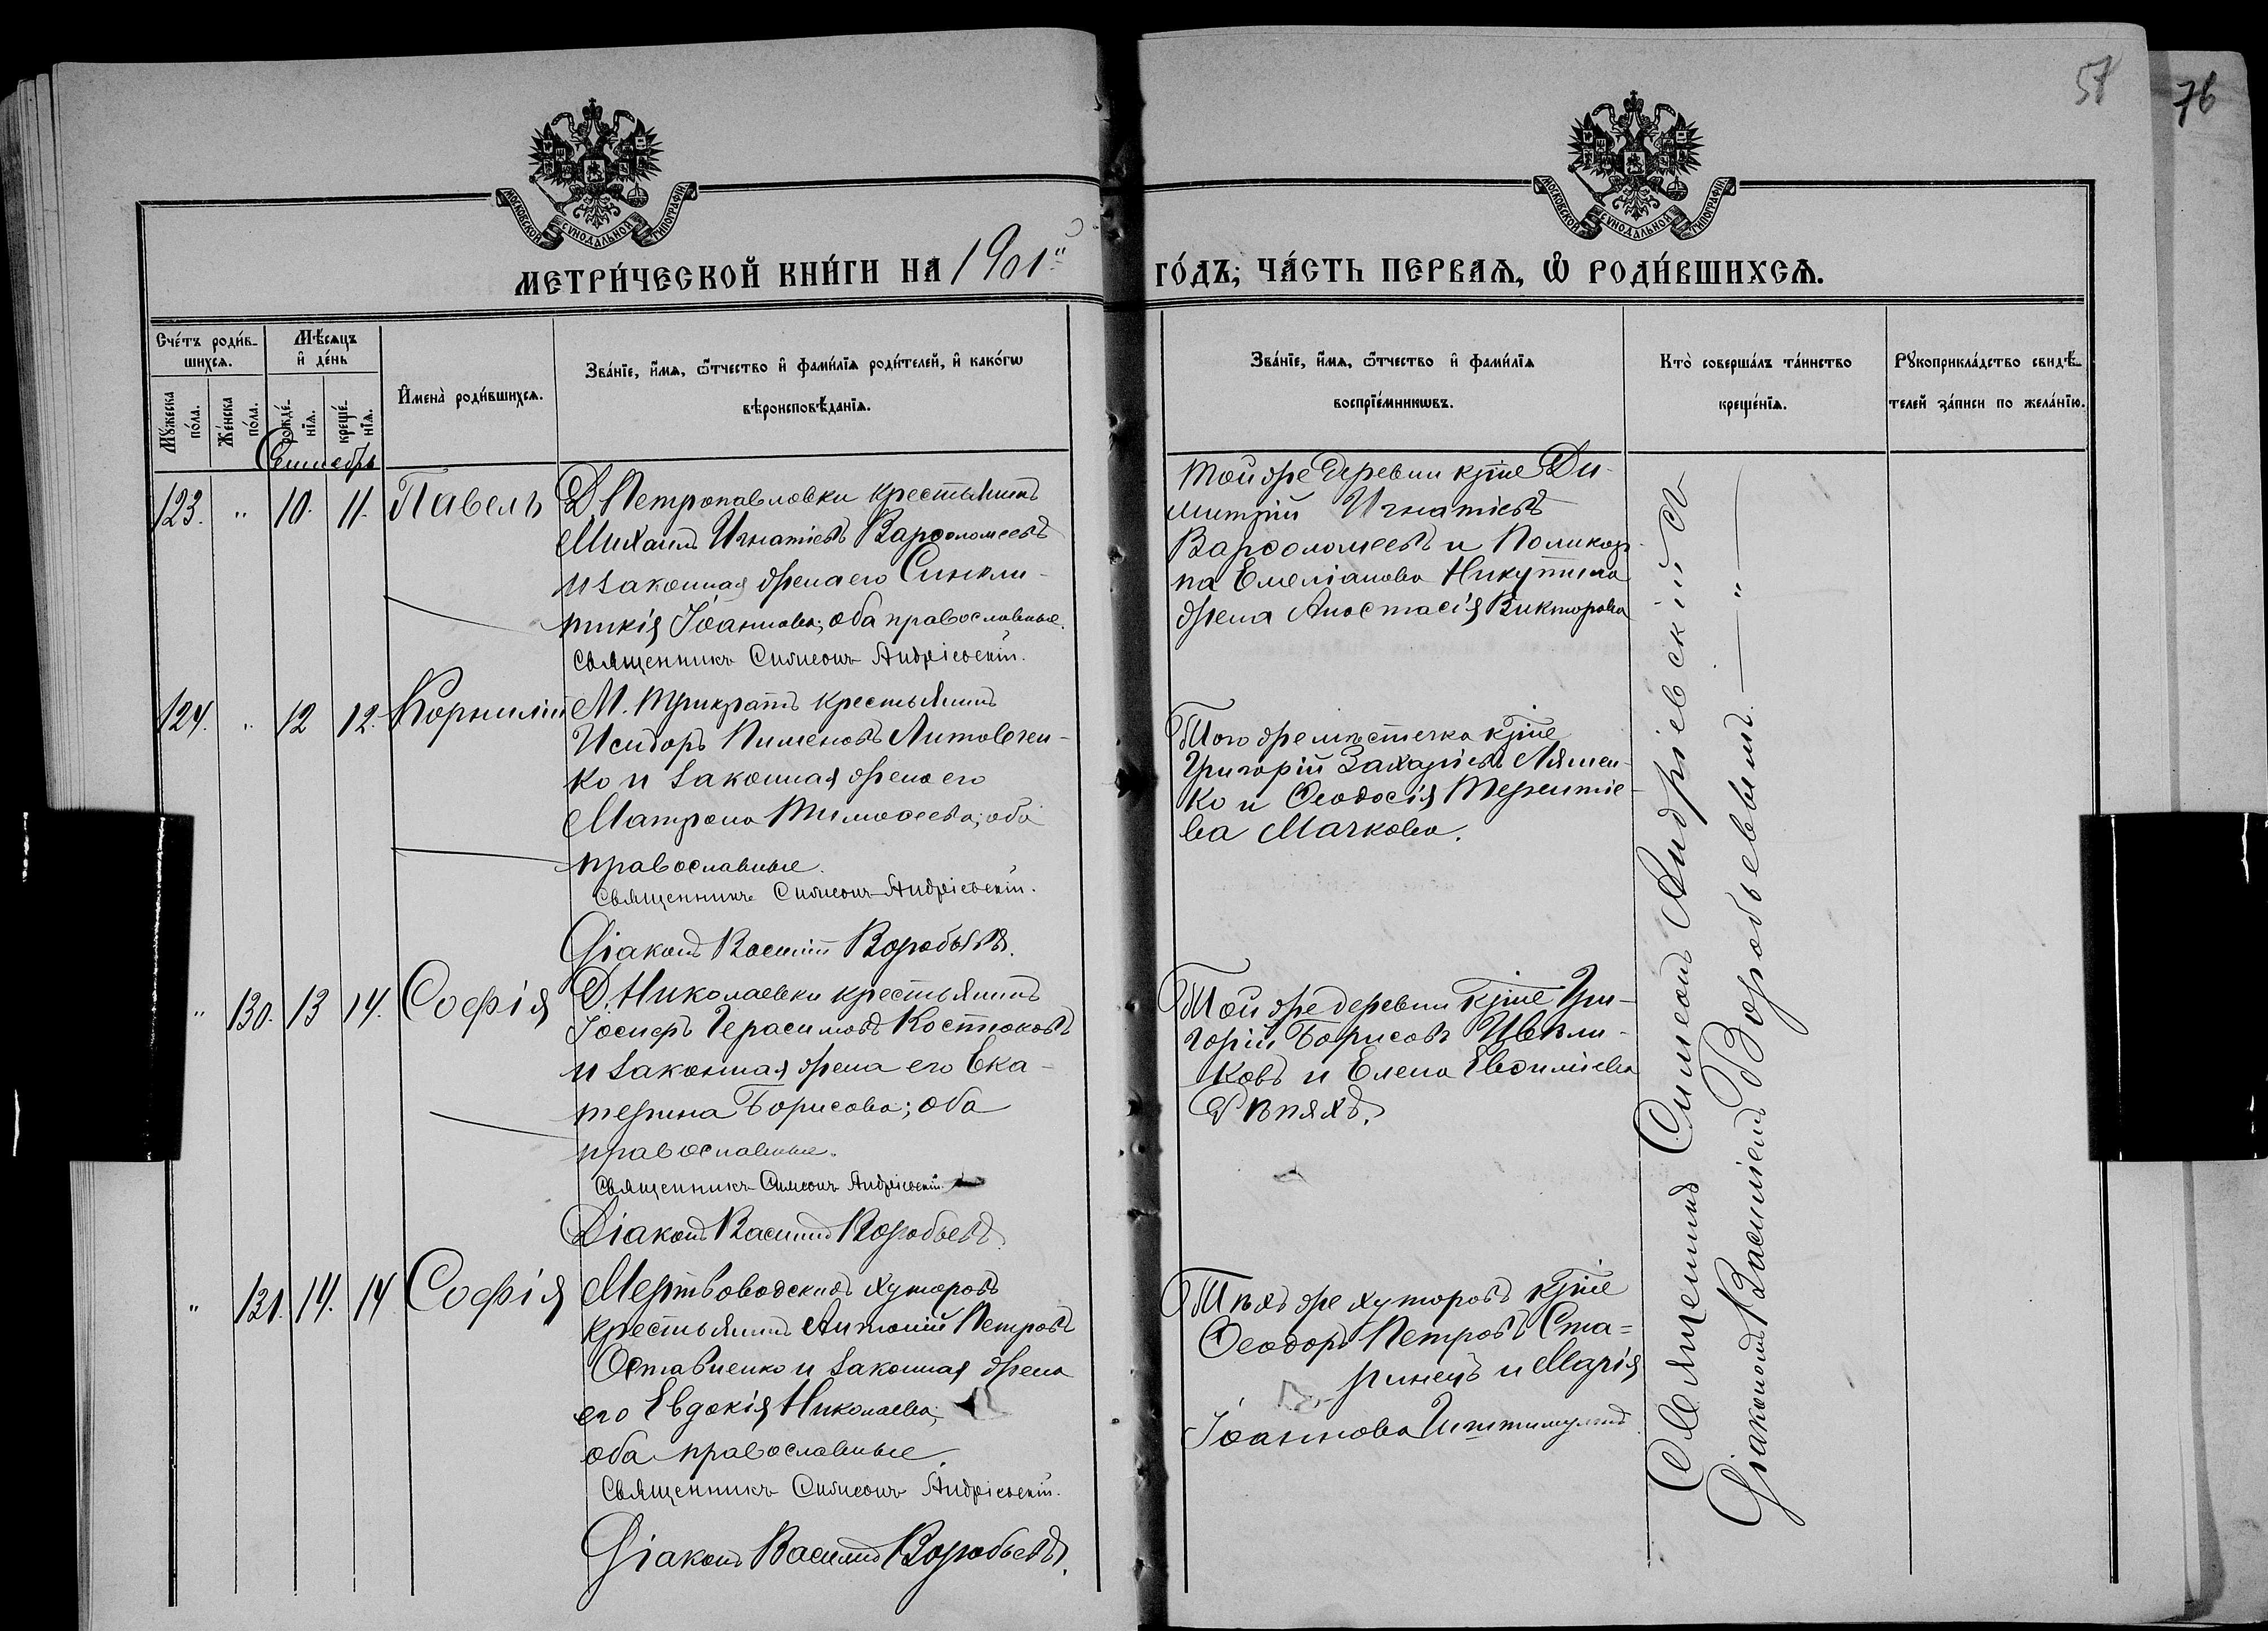 57
76
МОСКОВСКОЙ СѴНОДАЛЬНОЙ ТИПОГРАФІИ
МОСКОВСКОЙ СѴНОДАЛЬНОЙ ТИПОГРАФІИ
МЕТРИ́ЧЕСКОЙ КНИ́ГИ НА 1901й ГО́ДЪ; ЧА́СТЬ ПЕРВАѦ, Ѽ РОДИ́ВШИХСѦ.
Сче́тъ роди́в-
шихсѧ.
Мѣ́сѧцъ
и҆ де́нь
Мꙋ́жеска
по́ла.
Же́нска
по́ла.
рожде́-
нїѧ.
креще́-
нїѧ.
И҆мена̀ роди́вшихсѧ.
Зва́нїе, и҆́мѧ, ѻ҆́тчество и҆ фами́лїѧ роди́телей, и҆ како́гѡ
вѣроисповѣ́данїѧ.
Зва́нїе, и҆́мѧ, ѻ҆́тчество и҆ фами́лїѧ
воспрїе́мникѡвъ.
Кто̀ соверша́лъ та́инство
креще́нїѧ.
Рꙋкоприкла́дство свидѣ́-
телей за́писи по жела́нїю.
Сентябрь
123. " 10. 11. Павелъ
Д. Петропавловки крестьянинъ
Михаилъ Игнатіевъ Варѳоломеевъ
и законная жена его Синкли-
тикія Іоаннова; оба православные.
Священникъ Симеонъ Андріевскій.
Той же деревни кр-не Ди-
митрій Игнатіевъ
Варѳоломеевъ и Поликар-
па Емеліанова Никутина
жена Анастасія Викторова
124. " 12 12. Корнилій
М. Трикратъ крестьянинъ
Исидоръ Пименовъ Литовчен-
ко и законная жена его
Матрона Тимоѳеева; оба
православные.
Священникъ Симеонъ Андріевскій.
Діаконъ Василій Воробьевъ.
Того же мѣстечка кр-не
Григорій Захаріевъ Ляшен-
ко и Ѳеодосія Терентіе-
ва Мачкова.
" 130. 13 14. Софія
Д. Николаевки крестьянинъ
Іосифъ Герасимовъ Костюковъ
и законная жена его Ека-
терина Борисова; оба
православные.
Священникъ Симеонъ Андріевскій.
Діаконъ Василій Воробьевъ.
Той же деревни кр-не Гри-
горій Борисовъ Цвѣли-
ковъ и Елена Евѳиміева
Рѣпяхъ.
" 131. 14. 14 Софія
Мертвоводскихъ хуторовъ
крестьянинъ Антоній Петровъ
Оставненко и законная жена
его Евдокія Николаева;
оба православные.
Священникъ Симеонъ Андріевскій.
Діаконъ Василій Воробьевъ.
Тѣхъ же хуторовъ кр-не
Ѳеодоръ Петровъ Ста=
ринецъ и Марія
Іоаннова
Священникъ Симеонъ Андріевскій съ
Діакономъ Василіемъ Воробьевымъ. — " —